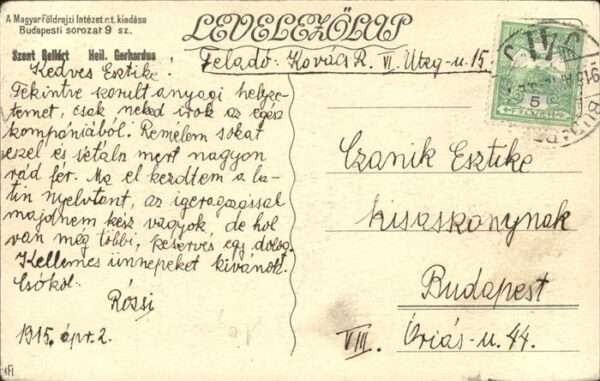 A Magyar Földrajzi Intézet r.t. kiadása
Budapesti sorozat 9 sz.
LEVELEZŐLAP
Szent Gellért Heil. Gerhardus
Feladó: Kovács R. VI. u. 15.
Kedves Esztike!
Tekintve korult anyagi helyze-
temet, csak neked irok az egész
kompániából. Remelem sokat
eszel és sétálsz mert nagyon
rád fér. Ma el kezdtem a la-
tin nyelvtant, az igeragozással
majdnem kész vagyok, de hol
van még többi, keserves egy dolog.
Kellemes ünnepeket kivánok.
Csókol
Rózsi
1915. ápr. 2.
Czanik Esztike
kisasszonynak
Budapest
VIII. Óriás-u. 44.
5